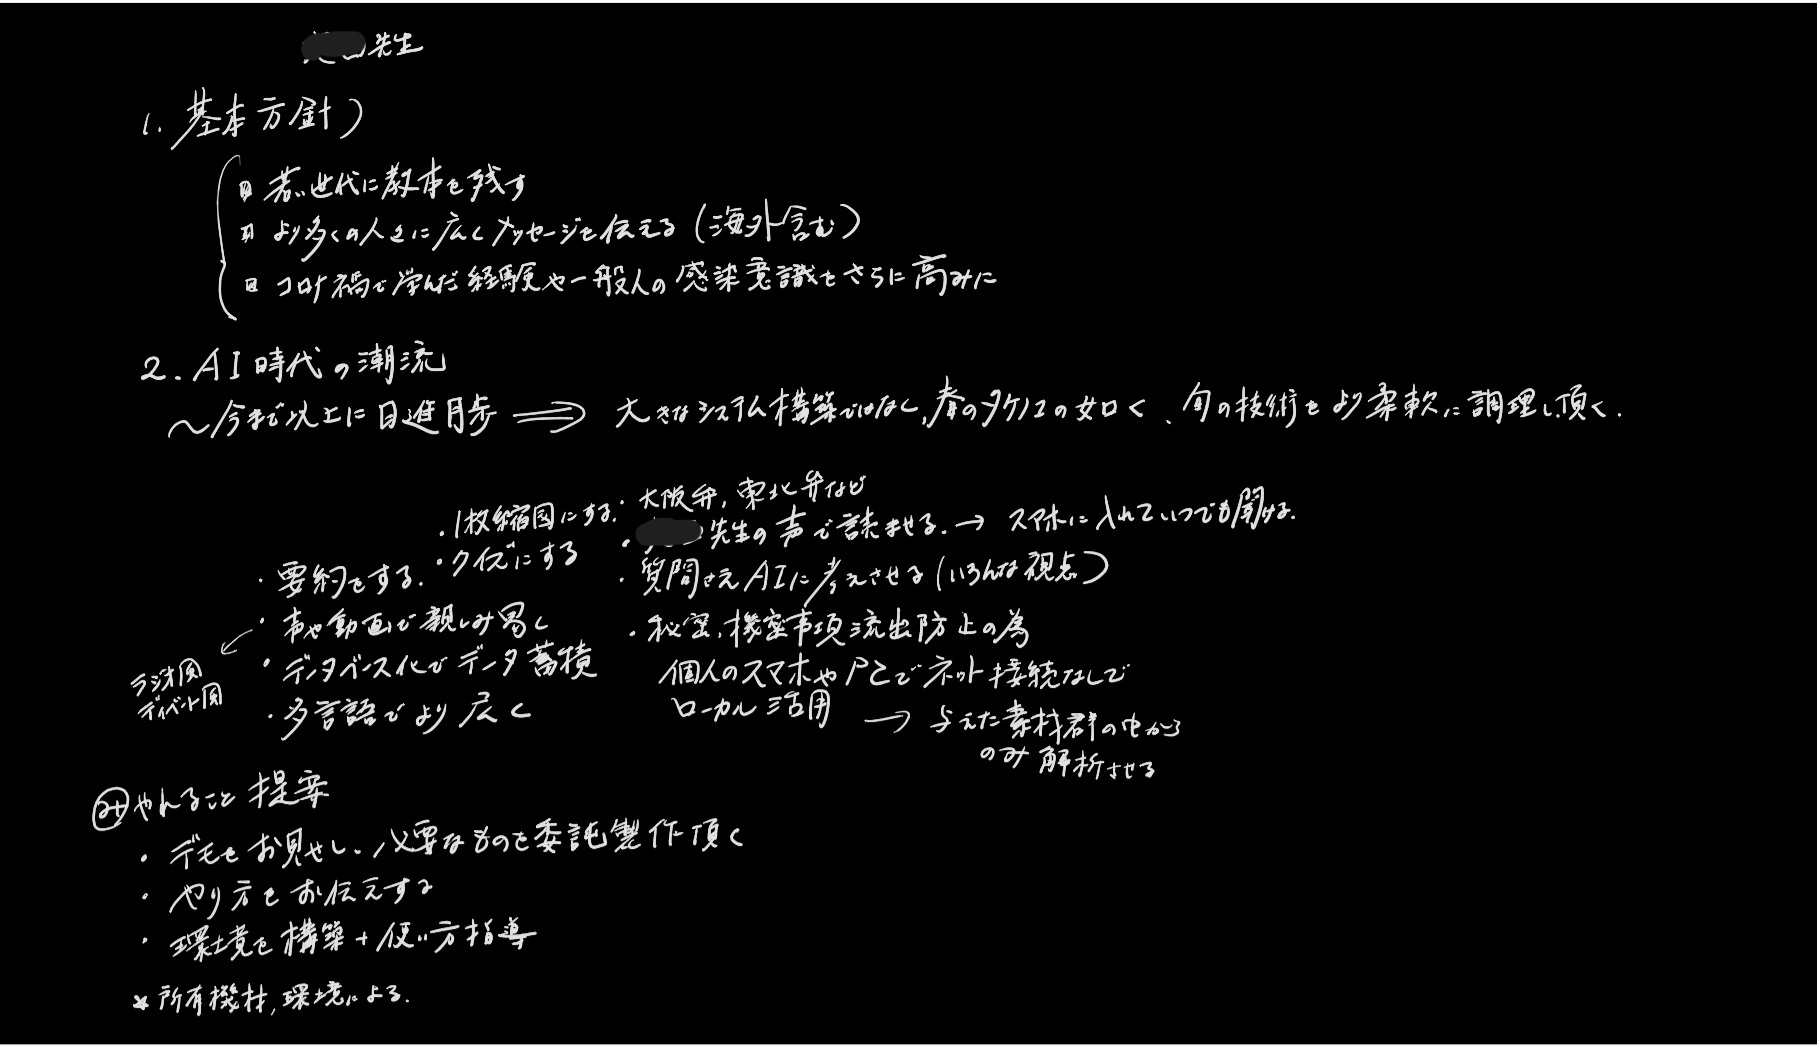 先生
1. 基本方針)
若い世代に教本を残す
より多くの人々に広くメッセージを伝える(海外含む)
コロナ禍で学んだ経験や一般人の感染意識をさらに高みに
2. AI時代の潮流
〜今まで以上に日進月歩 ⇒ 大きなシステム構築ではなく,春のタケノコの如く、旬の技術をより柔軟に調理し頂く.
・要約をする.
・声や動画で親しみ易く
ラジオ風
ディベート風
・データベース化でデータ蓄積
・多言語でより広く
・1枚縮図にする.
・クイズにする
・大阪弁, 東北弁など
・先生の声で読ませる. → スマホに入れていつでも聞ける.
・質問さえAIに考えさせる(いろんな視点)
・秘密, 機密事項流出防止の為
個人のスマホやPCでネット接続なしで
ローカル活用 → 与えた素材群の中から
のみ解析させる
やれること提案
・デモをお見せし、必要なものを委託製作頂く
・やり方をお伝えする
・環境を構築+使い方指導
*所有機材,環境による.